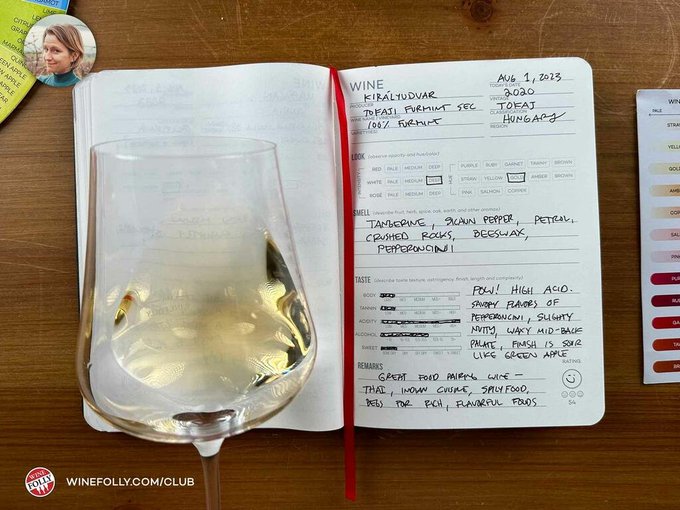 WINE
AUG 1, 2023
TODAY'S DATE
KIRÁLYUDVAR
2020
PRODUCER
VINTAGE
TOKAJI FURMINT SEC
TOKAJ
WINE NAME / VINEYARD
CLASSIFICATION
100% FURMINT
HUNGARY
VARIETY(IES)
REGION
LOOK (observe opacity and hue/color)
INTENSITY
HUE
RED PALE MEDIUM DEEP PURPLE RUBY GARNET TAWNY BROWN
WHITE PALE MEDIUM DEEP STRAW YELLOW GOLD AMBER BROWN
ROSÉ PALE MEDIUM DEEP PINK SALMON COPPER
SMELL (describe fruit, herb, spice, oak, earth, and other aromas)
TANGERINE, SICHUAN PEPPER, PETROL,
CRUSHED ROCKS, BEESWAX,
PEPPERONCINI
TASTE (describe taste texture, astringency, finish, length and complexity)
BODY
TANNIN
ACIDITY
ALCOHOL
SWEET
POW! HIGH ACID.
SAVORY FLAVORS OF
PEPPERONCINI, SLIGHTY
NUTTY, WAXY MID-BACK
PALATE, FINISH IS SOUR
LIKE GREEN APPLE
RATING
REMARKS
GREAT FOOD PAIRING WINE –
THAI, INDIAN CUISINE, SPICY FOOD,
BEGS FOR RICH, FLAVORFUL FOODS
54
WINE FOLLY
WINEFOLLY.COM/CLUB
PALE
STRAW